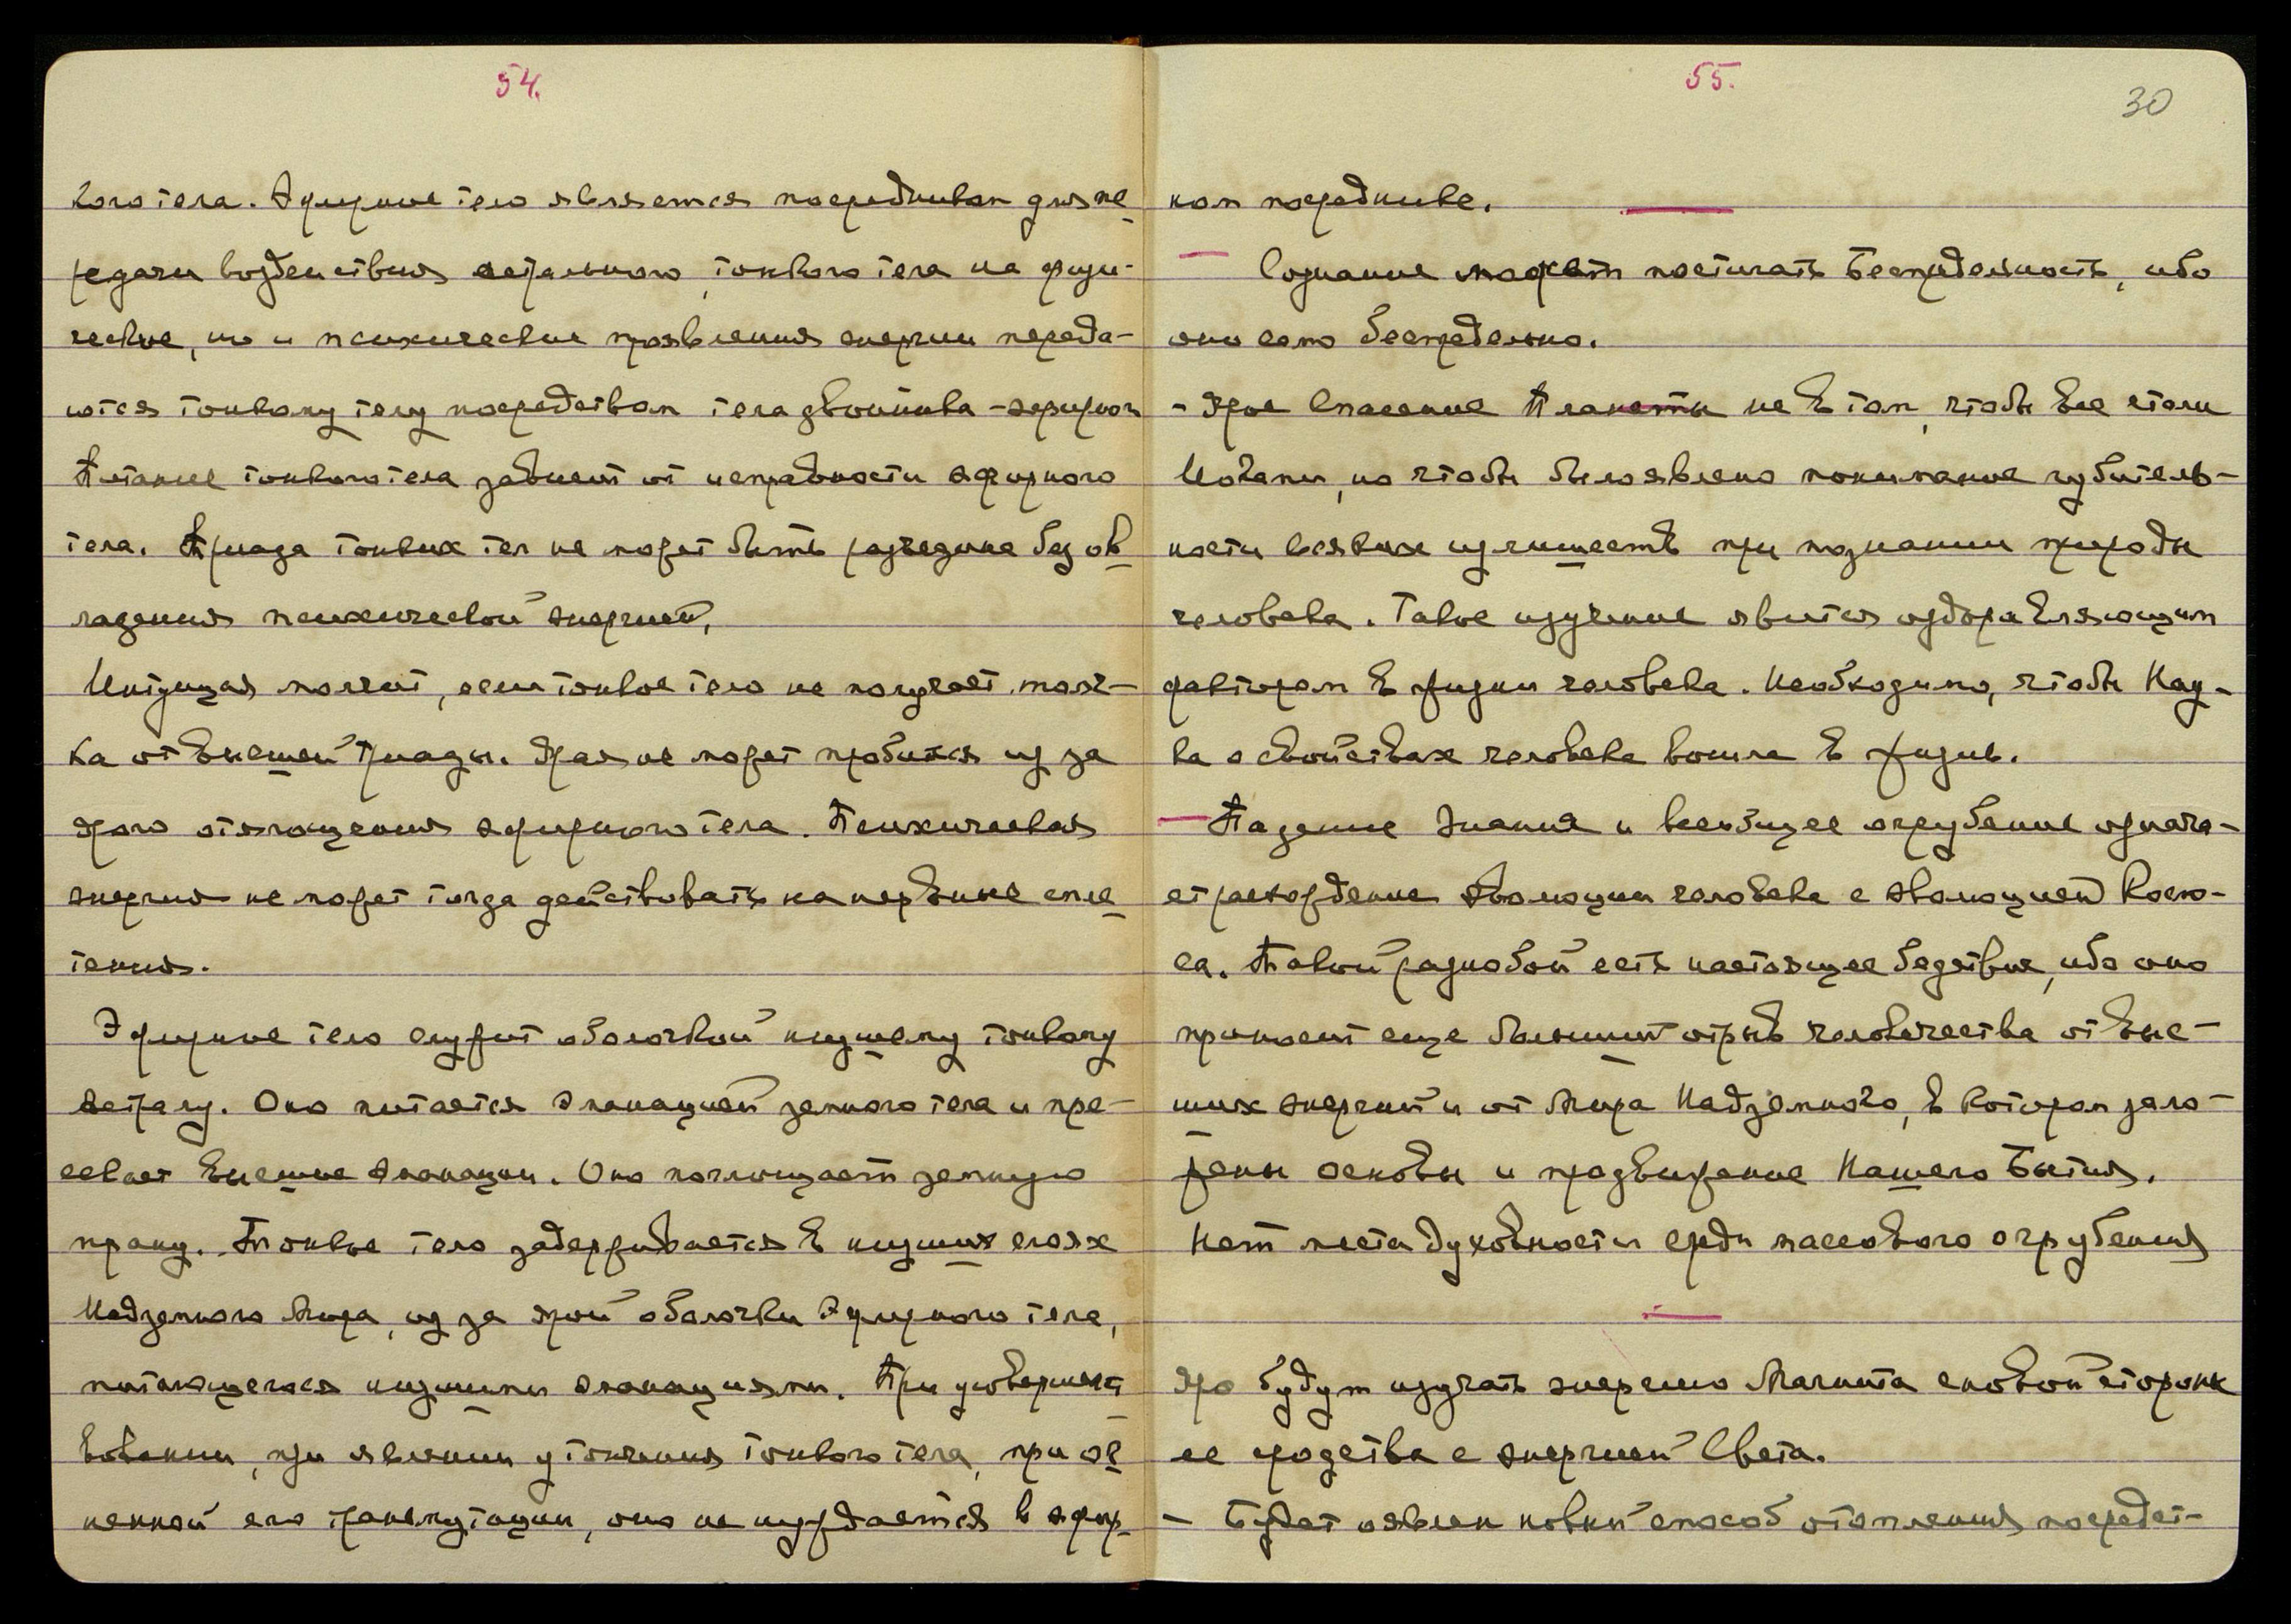 54.
кого тела. Эфирное тело является посредником для пе-
редачи воздействия астрального, тонкого тела на физи-
ческое, но и психические проявления энергии переда-
ются тонкому телу посредством тела двойника - эфирного
Питание тонкого тела зависит от исправности эфирного
тела. Триада тонких тел не может быть разъедине без ов-
ладения психической энергией.
Интуиция молчит, если тонкое тело не получает толч-
ка от внешней триады. Ярая не может пробиться из за
ярого отягощения эфирного тела. Психическая
энергия не может тогда действовать на нервные спле-
тения.
Эфирное тело служит оболочкой низшему тонкому
Астралу. Оно питается эманацией земного тела и пре-
секает внешние эманации. Оно поглощает земную
прану. Тонкое тело задерживается в низших слоях
Надземного Мира, из за ярой оболочки Эфирного тела,
питающегося низшими эманациями. При усовершенст-
вовании, при явлении утончения тонкого тела, при ог-
ненной его трансмутации, оно не нуждается в эфир-
55.
30
ном посреднике.
Сознание может постигать Беспредельность, ибо
оно само беспредельно.
- Ярое Спасение Планеты не в том, чтобы все стали
Иогами, но чтобы было явлено понимание губитель-
ности всяких излишеств при познании природы
человека. Такое изучение явится оздоравляющим
фактором в жизни человека. Необходимо, чтобы Нау-
ка о свойствах человека вошла в жизнь.
- Падение Знания и всеобщее огрубение означа-
ет расхождение эволюции человека с эволюцией Космо-
са. Такой разнобой есть настоящее бедствие, ибо оно
приносит еще больший отрыв человечества от выс-
ших энергий и от Мира Надземного, в котором зало-
жены основы и продвижение Нашего Бытия.
Нет места духовности среди массового огрубения
Яро будут изучать энергию Магнита с новой стороны
ее сродства с энергией Света.
- Будет явлен новый способ отопления посредст-